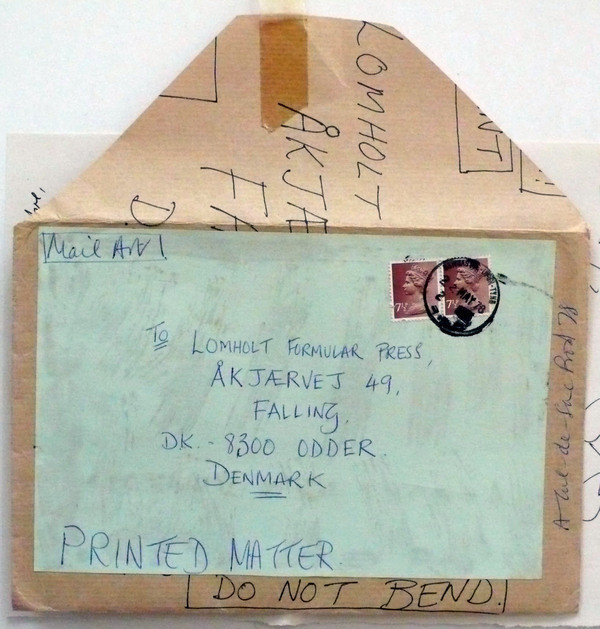 LOMHOLT
ÅKJÆ
FA
D.
NT
Mail Art!
7½
7½
MAY 78
To LOMHOLT FORMULAR PRESS,
ÅKJÆRVEJ 49,
FALLING,
DK. - 8300 ODDER.
DENMARK
PRINTED MATTER.
DO NOT BEND.
A Cul-de-Sac Prod 78